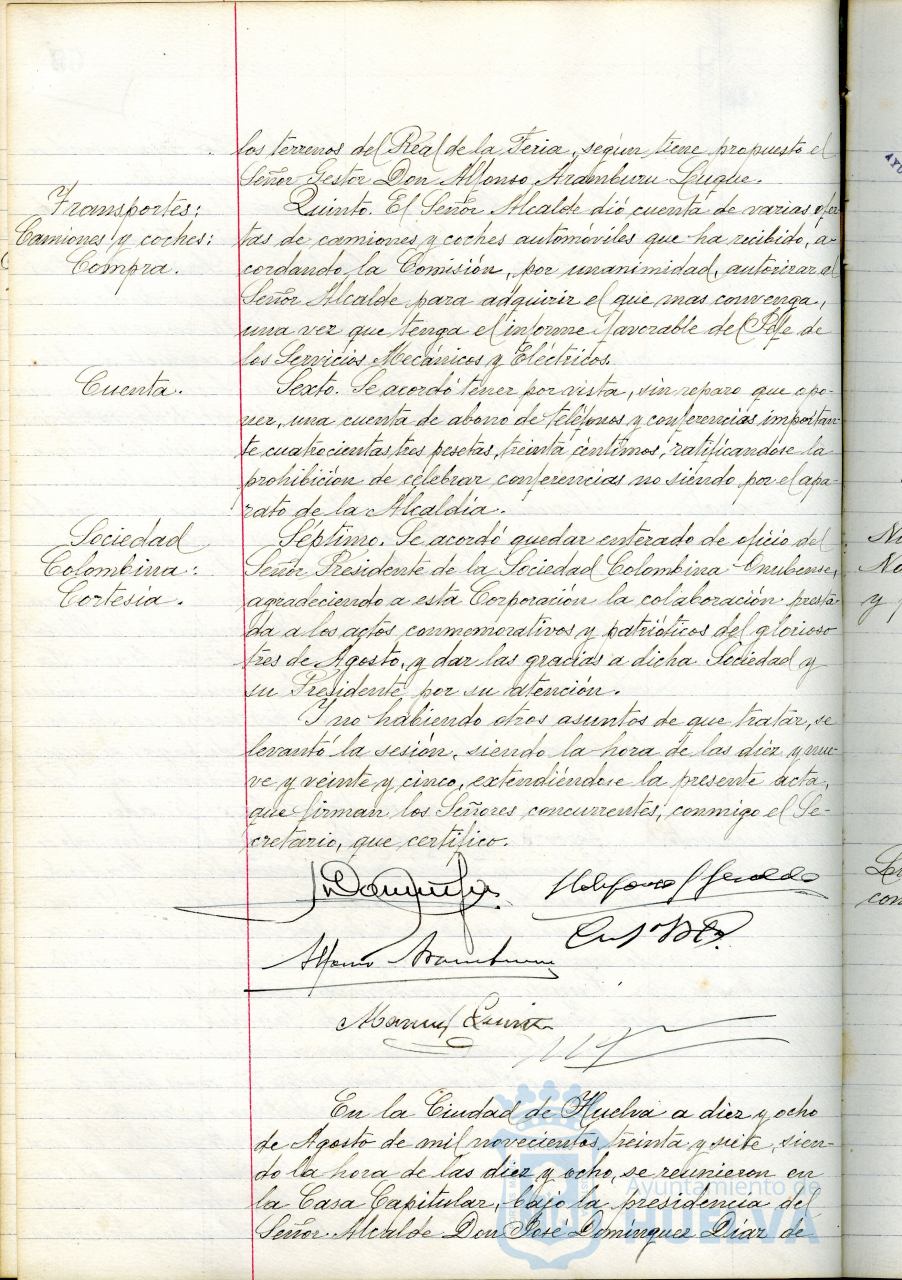 los terrenos del Real de la Feria, según tiene propuesto el
Señor Gestor Don Alfonso Aramburu Luque.
Transportes:
Camiones y coches:
Compra.
Quinto. El Señor Alcalde dió cuenta de varias ofer-
tas de camiones y coches automóviles que ha recibido, a-
cordando la Comisión, por unanimidad, autorizar al
Señor Alcalde para adquirir el que mas convenga,
una vez que tenga el informe favorable del Jefe de
los Servicios Mecánicos y Eléctricos.
Cuenta.
Sexto. Se acordó tener por vista, sin reparo que opo-
ner, una cuenta de abono de teléfonos y conferencias importan-
te cuatrocientas tres pesetas, treinta céntimos, ratificándose la
prohibición de celebrar conferencias no siendo por el apa-
rato de la Alcaldía.
Sociedad
Colombina:
Cortesía.
Séptimo. Se acordó quedar enterado de oficio del
Señor Presidente de la Sociedad Colombina Onubense,
agradeciendo a esta Corporación la colaboración presta-
da a los actos conmemorativos y patrióticos del glorioso
tres de Agosto, y dar las gracias a dicha Sociedad y
su Presidente por su atención.
Y no habiendo otros asuntos de que tratar, se
levantó la sesión, siendo la hora de las diez y nue-
ve y veinte y cinco, extendiéndose la presente acta,
que firman los Señores concurrentes, conmigo el Se-
cretario, que certifico.
Alfonso Aramburu
Manuel
En la Ciudad de Huelva a diez y ocho
de Agosto de mil novecientos treinta y siete, sien-
do la hora de las diez y ocho, se reunieron en
la Casa Capitular, bajo la presidencia del
Señor Alcalde Don José Domínguez Díaz de
Ayuntamiento de
HUELVA